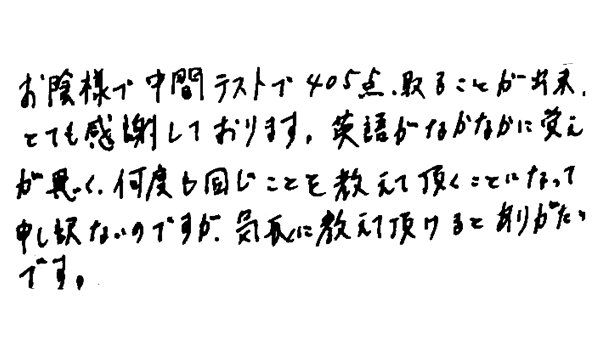 お陰様で中間テストで405点、取ることが出来、
とても感謝しております。英語がなかなかに覚え
が悪く、何度も同じことを教えて頂くことになって
申し訳ないのですが、気長に教えて頂けるとありがたい
です。